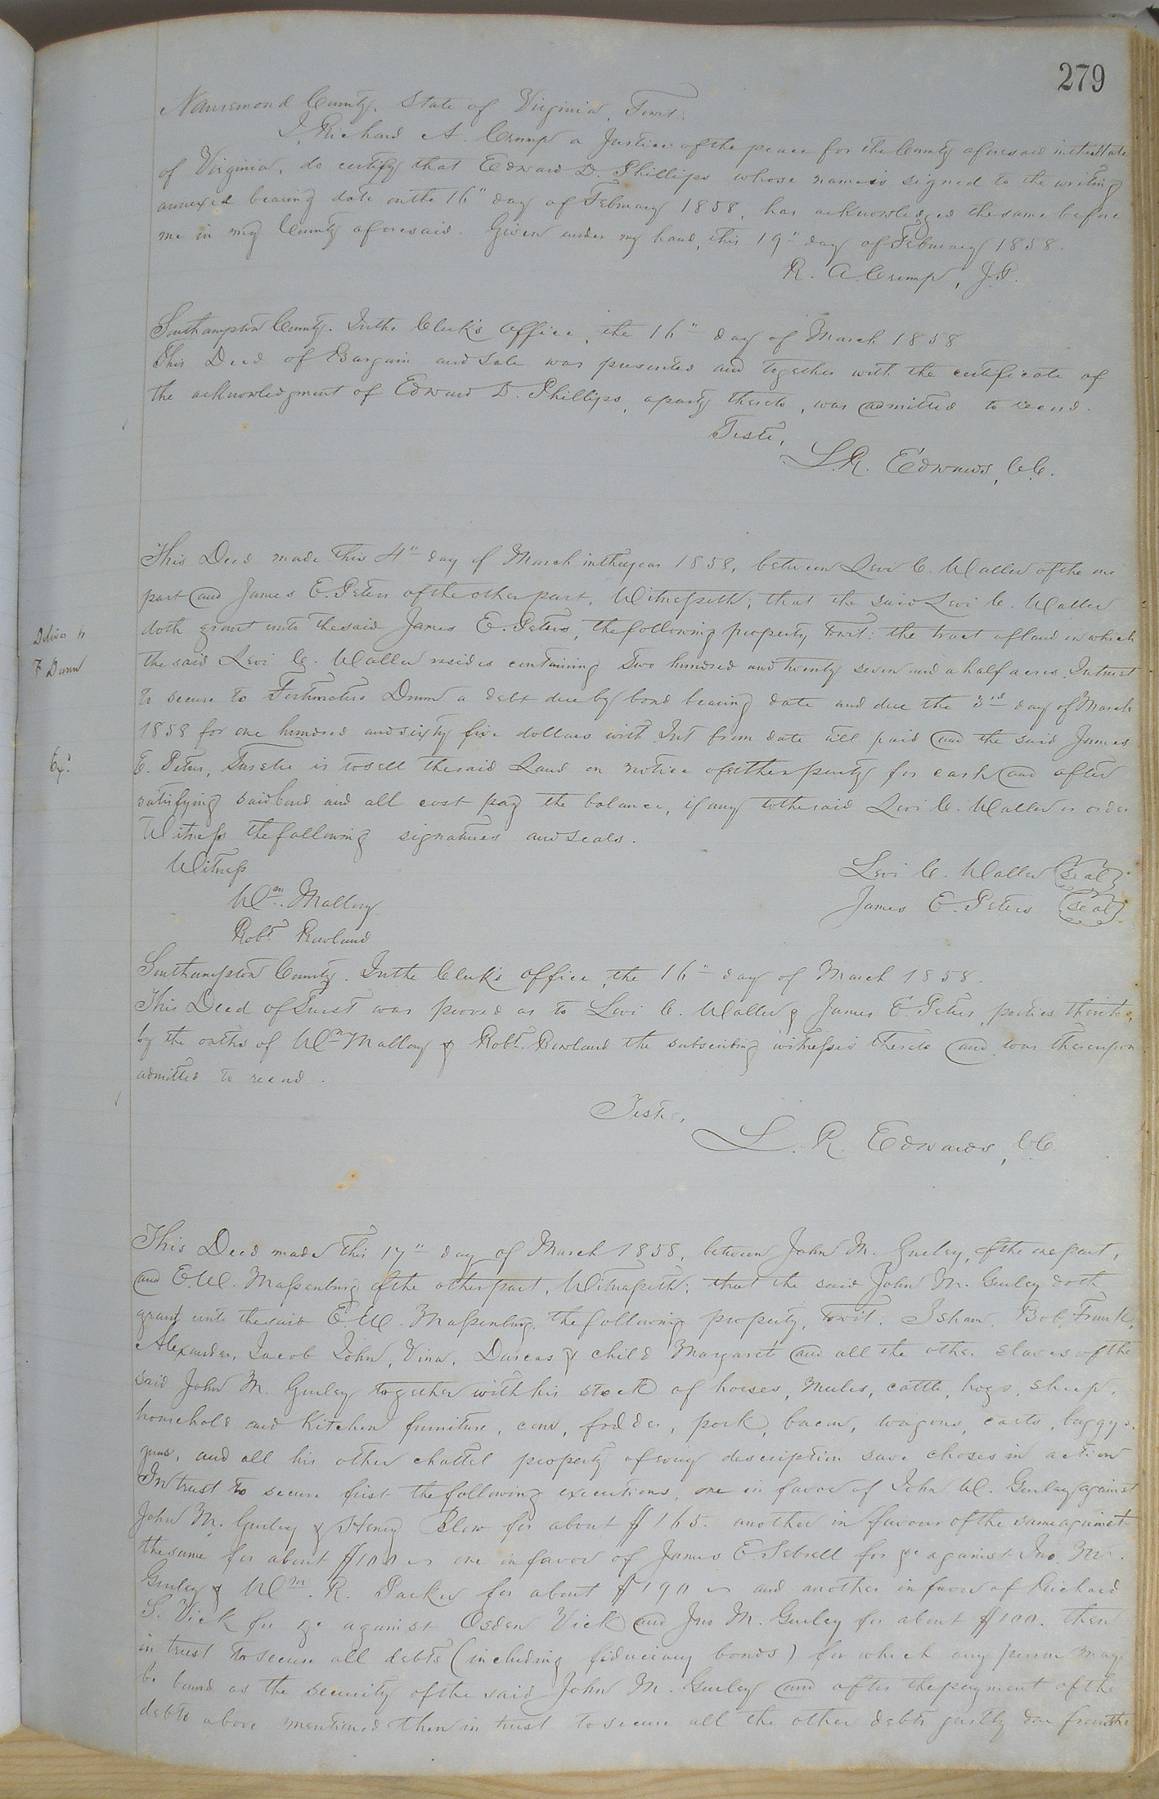 279
Nansemond County, State of Virginia, Towit:
I, Richard A. Crump a Justice of the peace for the County aforesaid in the State
of Virginia, do certify that Edward D. Phillips whose name is signed to the writing
annexed bearing date on the 16" day of February 1858, has acknowledged the same before
me in my County aforesaid. Given under my hand, this 19" day of February 1858.
R. A. Crump, J.P.
Southampton County. In the Clerk's Office, the 16" day of March 1858
This Deed of Bargain and Sale was presented and together with the certificate of
the acknowledgment of Edward D. Phillips, a party thereto, was admitted to record.
Teste,
L. R. Edwards, C.C.
This Deed made this 4" day of March in the year 1858, between Levi C. Waller of the one
part and James E. Peters of the other part, Witnesseth; that the said Levi C. Waller
doth grant unto the said James E. Peters, the following property towit: the tract of land on which
the said Levi C. Waller resides containing Two hundred and twenty seven and a half acres. In trust
to secure to Fortunatus Drum a debt due by bond bearing date and due the 3rd day of March
1858 for one hundred and sixty five dollars with Int from date till paid and the said James
E. Peters, Trustee is to sell the said Land on notice of either party for cash and after
satisfying said bond and all cost pay the balance, if any to the said Levi C. Waller or order
Witness the following signatures and seals.
Witness
Levi C. Waller (Seal)
Wm. Mallory
James E. Peters (Seal)
Robt Rowland
Southampton County. In the Clerk's Office, the 16" day of March 1858.
This Deed of Trust was proved as to Levi C. Waller & James E Peters, parties thereto,
by the oaths of Wm Mallory & Robt. Rowland the subscribing witnesses thereto and was thereupon
admitted to record.
Teste,
L. R. Edwards, C.C.
This Deed made this 17" day of March 1858, between John M. Gurley, of the one part,
and E W. Massenburg of the other part, Witnesseth; that the said John M. Gurley doth
grant unto the said E. W. Massenburg, the following property, towit. Isham, Bob, Frank,
Alexander, Jacob, John, Vina, Darcas & child Margaret and all the other slaves of the
said John M. Gurley together with his stock of horses, mules, cattle, hogs, sheep,
household and Kitchen furniture, corn, fodder, pork, bacon, wagons, carts, buggys,
and all his other chattel property of every description save choses in action
In trust to secure first the following executions, one in favor of John W. Gurley against
John M. Gurley & Henry Blow for about $165. another in favour of the same against
the same for about $100 one in favor of James E Sebrell for &c against Jno. M.
Gurley & Wm. R. Parker for about $190 and another in favor of Richard
S. Vick for &c against Osden Vick and Jno M. Gurley for about $100. then
in trust to secure all debts (including fiduciary bonds) for which any person may
be bound as the security of the said John M. Gurley and after the payment of the
debts above mentioned then in trust to secure all the other debts justly due from the